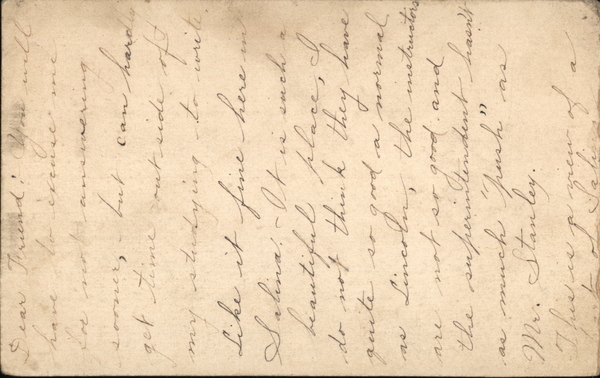 Dear Friend: You will
have to excuse me
for not answering
sooner, - but can hardly
get time out side of
my studying to write.
Like it fine here in
Salina. - It is such a
beautiful place, I
do not think they have
quite so good a normal
as Lincoln, the instructors
are not so good and
the superintendent hasn't
as much "push" as
Mr. Stanley.
This is a view of a
of Salina